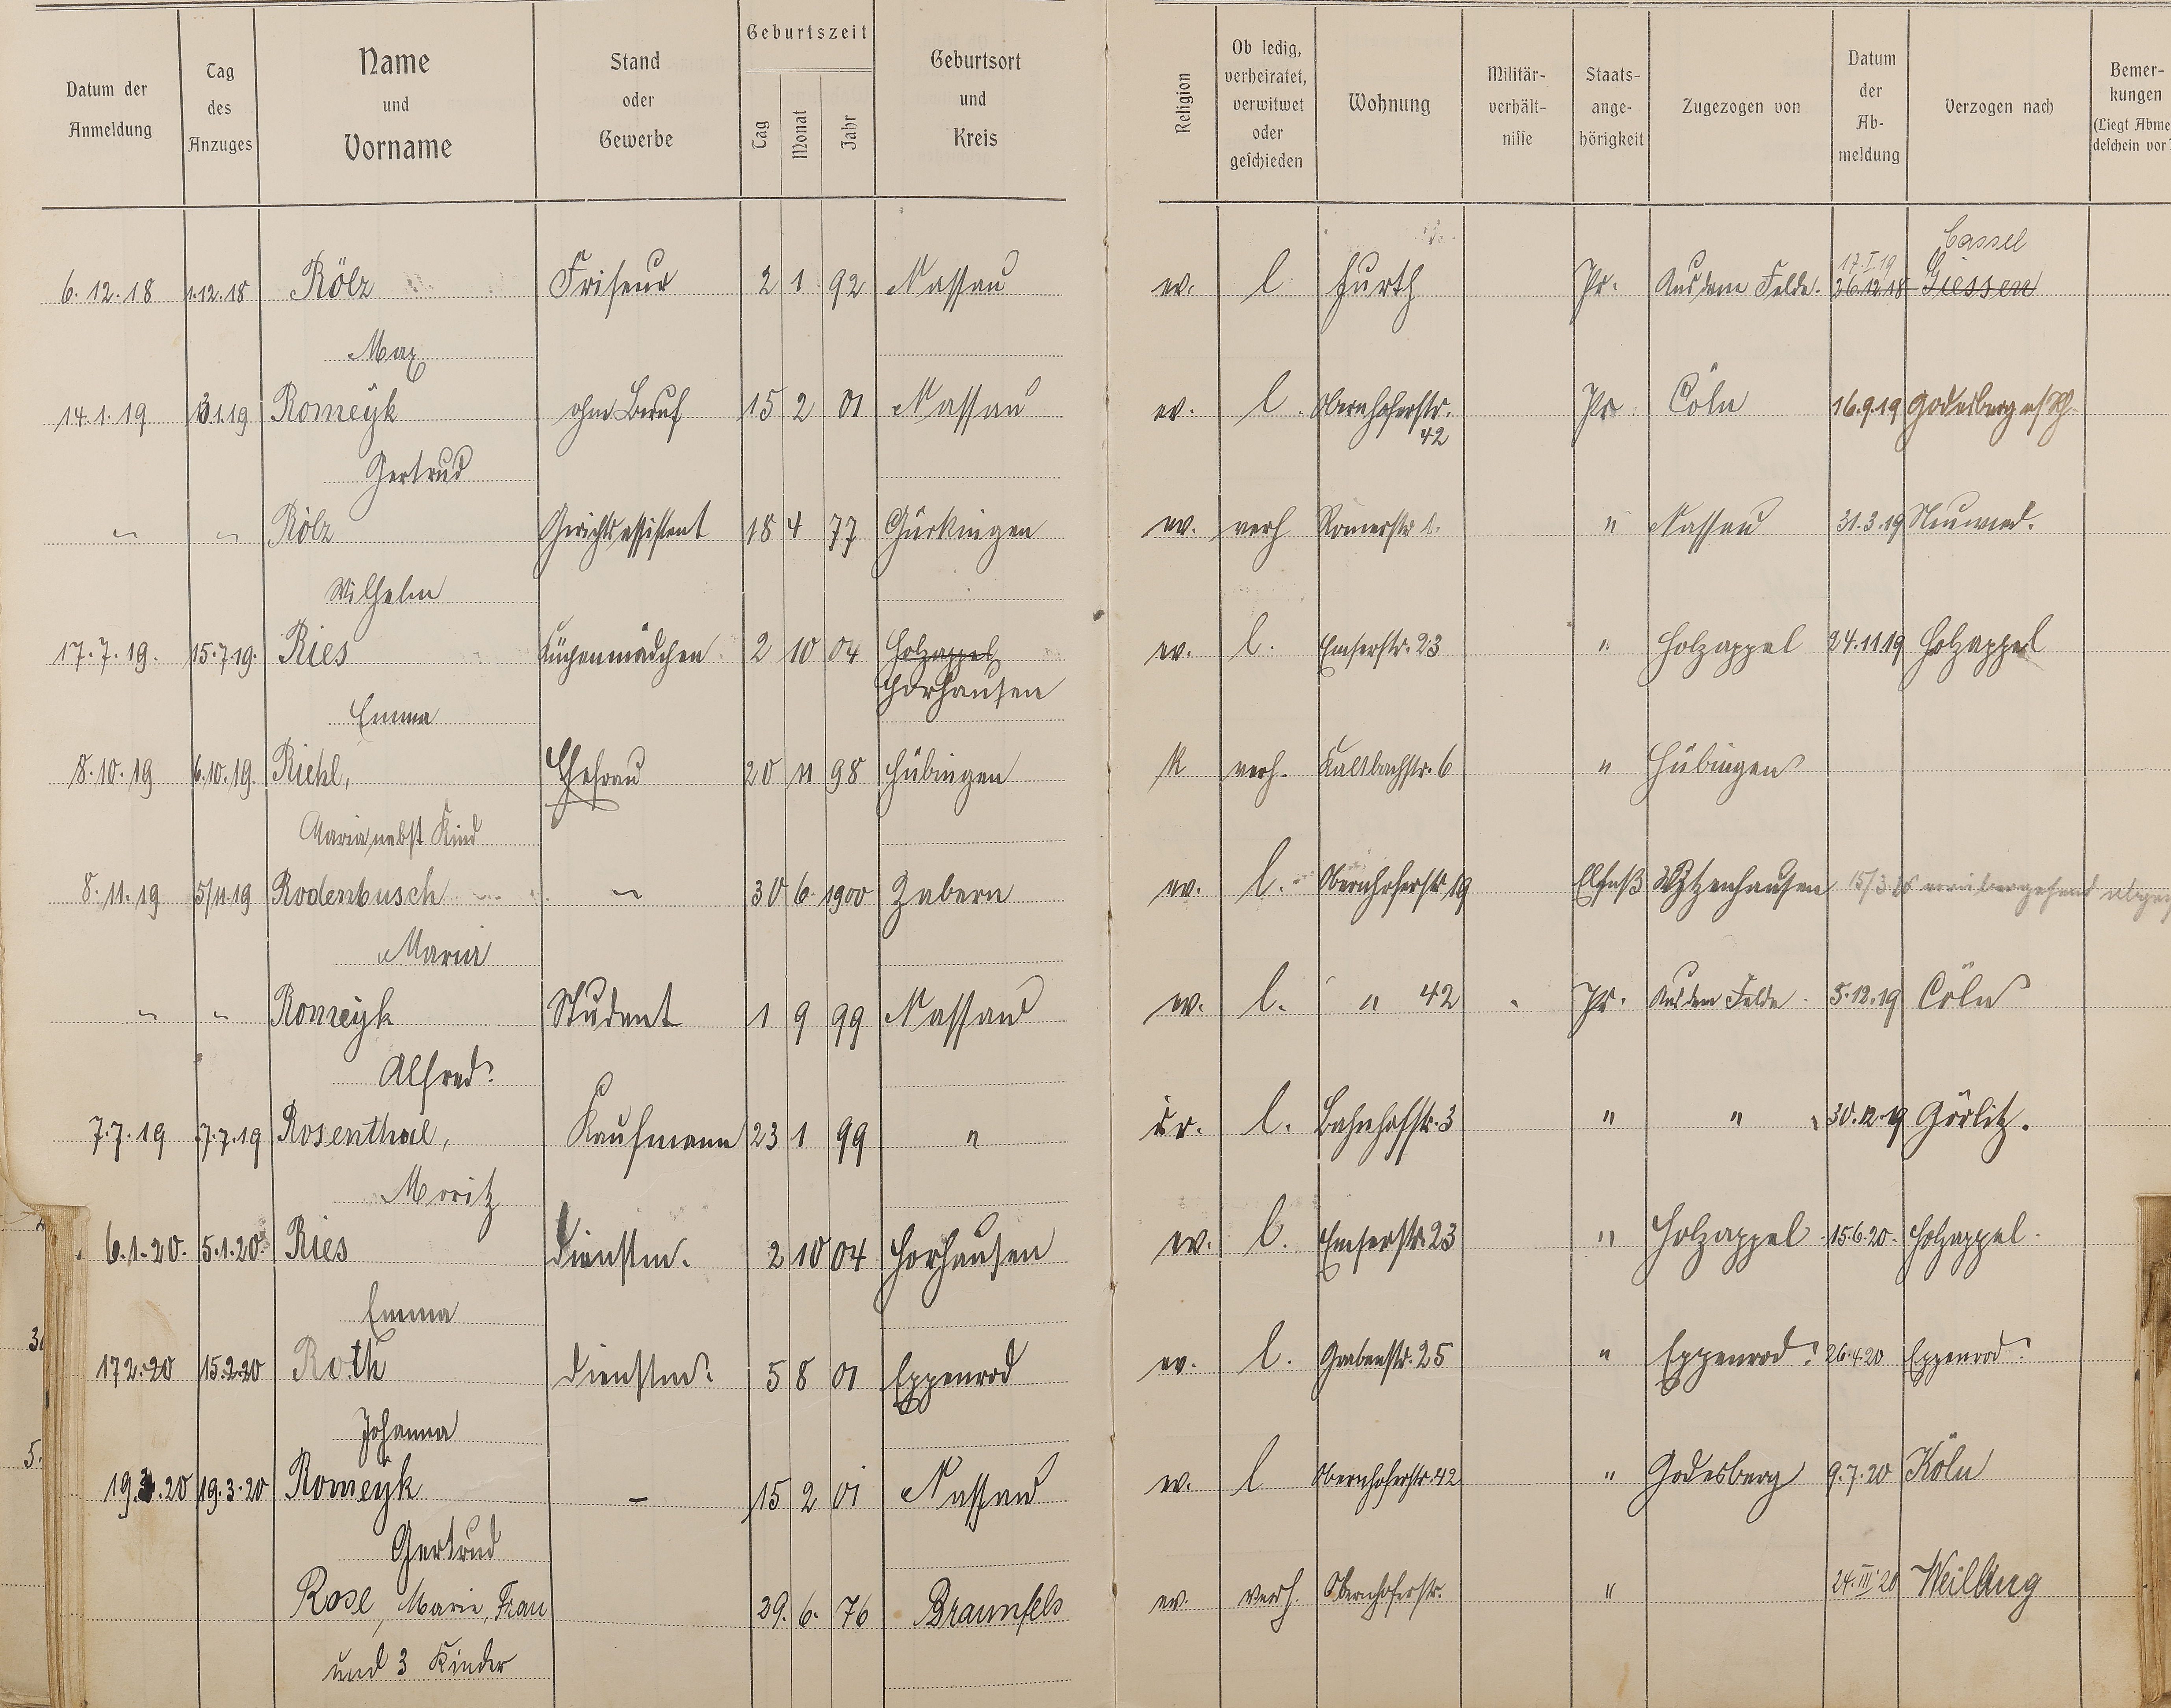 Datum der Anmeldung | Tag des Anzuges | Name und Vorname | Stand oder Gewerbe | Geburtszeit Tag Monat Jahr | Geburtsort und Kreis | Religion | Ob ledig, verheiratet, verwitwet oder geschieden | Wohnung | Militär-verhält-nisse | Staats-ange-hörigkeit | Zugezogen von | Datum der Ab-meldung | Verzogen nach | Bemer-kungen (Liegt Abme deschein vor?
Cassel
17.I.19
6.12.18 1.12.18 Rölz Friseur 2 1 92 Nassau ev. l Furth Pr. Aus dem Felde. 26.12.18 Giessen
Max
14.1.19 3.1.19 Romeyk ohne Beruf 15 2 01 Nassau ev. l. Obernhoferstr. Pr Cöln 16.9.19 Godesberg a/Rh.
42
Gertrud
" " Rölz Gerichtsassistent 18 4 77 ev. verh Römerstr. 1. " Nassau 31.3.19 Neuwied.
Wilhelm
17.7.19. 15.7.19. Ries Küchenmädchen 2 10 04 Holzappel ev. l. Emserstr. 23 " Holzappel 24.11.19 Holzappel
Horhausen
Emma
8.10.19 6.10.19. Riehl, Ehefrau 20 11 98 Hübingen K verh. Kaltbachstr. 6 " Hübingen
Maria nebst Kind
8.11.19 5/11.19 Rodenbusch " 30 6 1900 Zabern ev. l. Obernhoferstr 19 Elsaß Witzenhausen 15/3.20 vorübergehend
Maria
" " Romeyk Student 1 9 99 Nassau ev. l. " 42 Pr. Aus dem Felde. 5.12.19 Cöln
Alfred.
7.7.19 7.7.19 Rosenthal, Kaufmann 23 1 99 " isr. l. Bahnhofstr. 3 " " 30.12.19 Görlitz.
Moritz
6.1.20. 5.1.20. Ries Dienstm. 2 10 04 Horhausen ev. l. Emserstr. 23 " Holzappel 15.6.20. Holzappel.
Emma
17.2.20 15.2.20 Roth Dienstm. 5 8 01 Eppenrod ev. l. Grabenstr. 25 " Eppenrod. 26.4.20 Eppenrod.
Johanna
19.3.20 19.3.20 Romeyk – 15 2 01 Nassau ev. l Obernhoferstr. 42 " Godesberg 9.7.20 Köln
Gertrud
Rose, Marie, Frau 29. 6. 76 Braunfels ev. verh. Obernhoferstr. " 24.III.20 Weilburg
und 3 Kinder